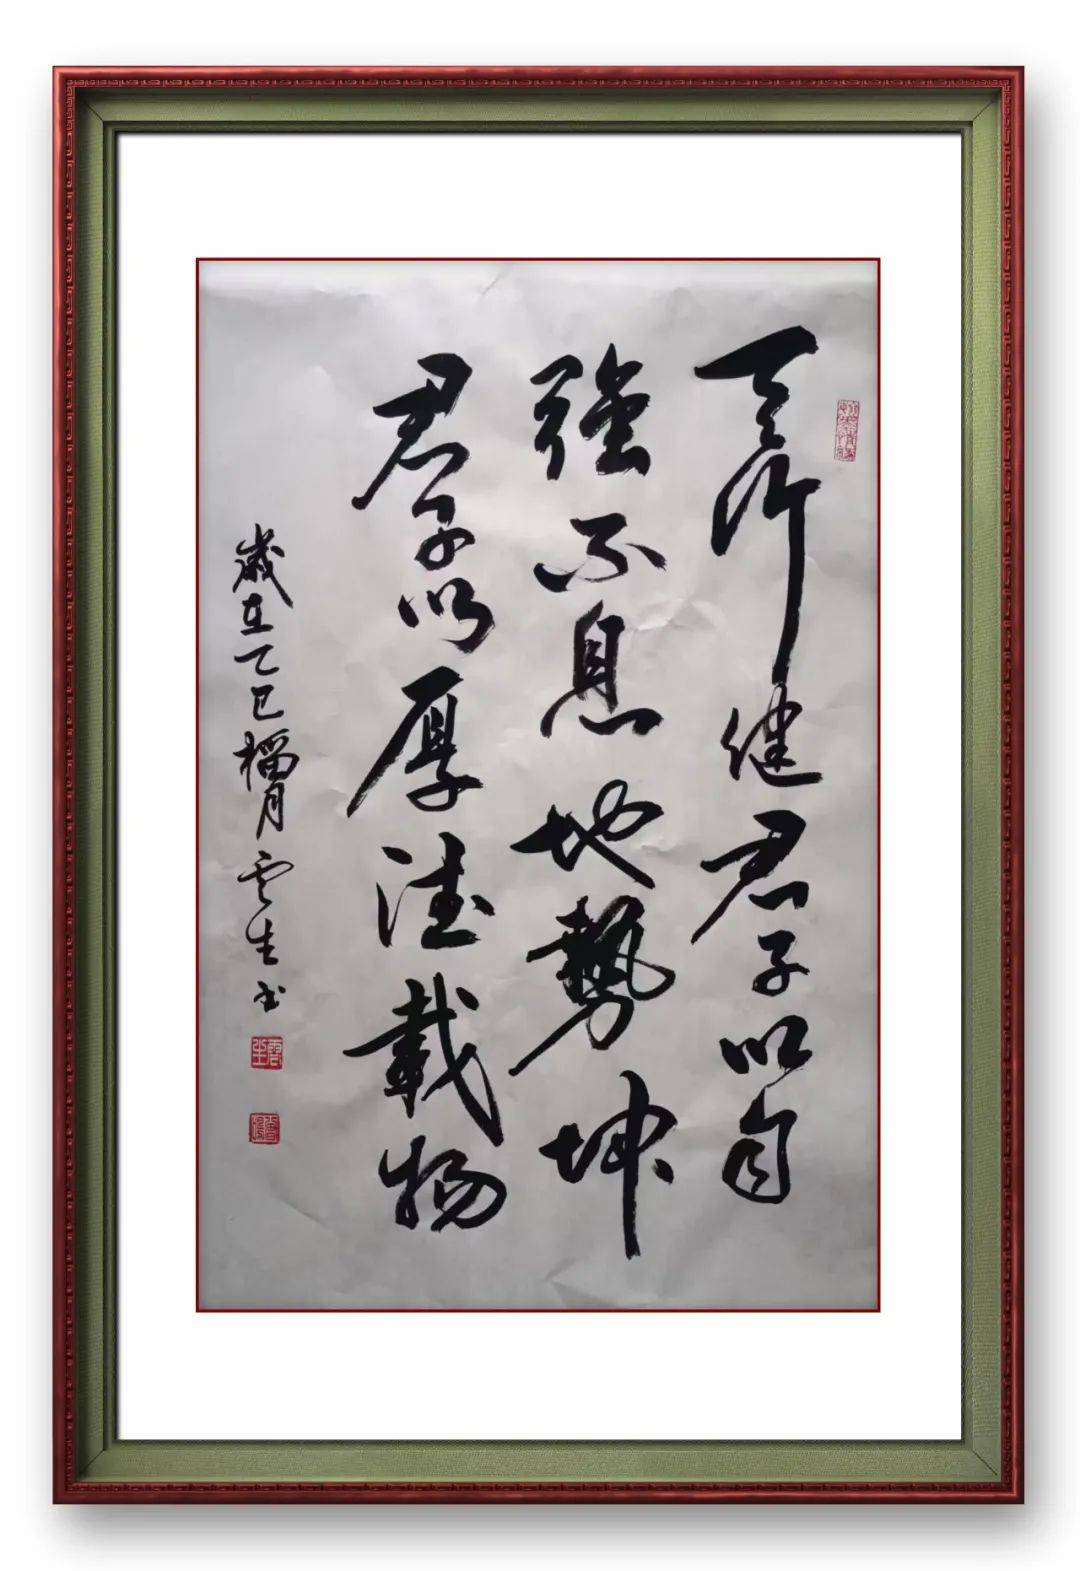 天行健君子以自
强不息地勢坤
君子以厚德載物
歲在乙巳榴月雲生书
雲生